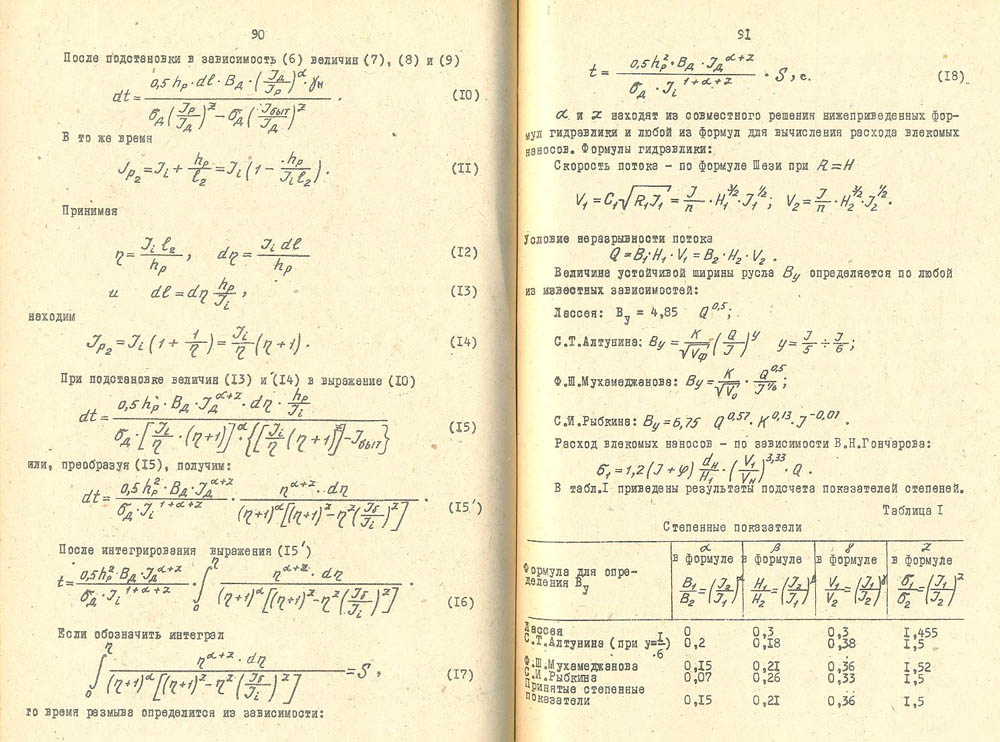 90
После подстановки в зависимость (6) величин (7), (8) и (9)
dt = 0,5 hр · dl · Bд · (Jд/Jр)^α γн / (σд (Jр/Jд)^z − σд (Jбыт/Jд)^z) . (10)
В то же время
Jр₂ = Ji + hр/l₂ = Ji (1 − hр/(Ji l₂)) . (11)
Принимая
η = Ji l₂/hр , dη = Ji dl/hр (12)
и dl = dη hр/Ji , (13)
находим
Jр₂ = Ji (1 + 1/η) = Ji/η (η + 1) . (14)
При подстановке величин (13) и (14) в выражение (10)
dt = 0,5 hр · Bд · Jд^(α+z) · dη · hр/Ji / (σд · [Ji/η · (η+1)]^α · {[Ji/η (η+1)]^z − Jбыт}) (15)
или, преобразуя (15), получим:
dt = 0,5 hр² · Bд · Jд^(α+z) / (σд · Ji^(1+α+z)) · η^(α+z) · dη / ((η+1)^α [(η+1)^z − η^z (Jб/Ji)^z]) (15′)
После интегрирования выражения (15′)
t = 0,5 hр² · Bд · Jд^(α+z) / (σд · Ji^(1+α+z)) · ∫₀^η η^(α+z) · dη / ((η+1)^α [(η+1)^z − η^z (Jб/Ji)^z]) . (16)
Если обозначить интеграл
∫₀^η η^(α+z) · dη / ((η+1)^α [(η+1)^z − η^z (Jб/Ji)^z]) = S , (17)
то время размыва определится из зависимости:
91
t = 0,5 hр² · Bд · Jд^(α+z) / (σд · Ji^(1+α+z)) · S , с. (18)
α и z находят из совместного решения нижеприведенных фор-
мул гидравлики и любой из формул для вычисления расхода влекомых
наносов. Формулы гидравлики:
Скорость потока - по формуле Шези при R = H
V₁ = C₁ √(R₁J₁) = J/n · H₁^(3/2) · J₁^(1/2) ; V₂ = J/n · H₂^(3/2) · J₂^(1/2) .
Условие неразрывности потока
Q = B₁ · H₁ · V₁ = B₂ · H₂ · V₂ .
Величина устойчивой ширины русла Bу определяется по любой
из известных зависимостей:
Лассея: Bу = 4,85 Q^0,5 ;
С.Т.Алтунина: Bу = K/√Vф (Q/J)^y y = J/5 ÷ J/6 ;
Ф.Ш.Мухамеджанова: Bу = K/√V₀ · Q^0,5/J^(1/6) ;
С.И.Рыбкина: Bу = 6,75 Q^0,57 · K^0,13 · J^−0,07 .
Расход влекомых наносов - по зависимости В.Н.Гончарова:
σ₁ = 1,2 (J + φ) dн/H₁ · (V₁/Vн)^3,33 · Q .
В табл.I приведены результаты подсчета показателей степеней.
Таблица I
Степенные показатели
Формула для опре- деления Bу | α в формуле B₁/B₂ = (J₂/J₁)^α | β в формуле H₁/H₂ = (J₂/J₁)^β | γ в формуле V₁/V₂ = (J₁/J₂)^γ | z в формуле σ₁/σ₂ = (J₁/J₂)^z
Лассея 0 0,3 0,3 1,455
С.Т.Алтунина (при y=1/6) 0,2 0,18 0,38 1,5
Ф.Ш.Мухамеджанова 0,15 0,21 0,36 1,52
С.И.Рыбкина 0,07 0,26 0,33 1,5
Принятые степенные
показатели 0,15 0,21 0,36 1,5